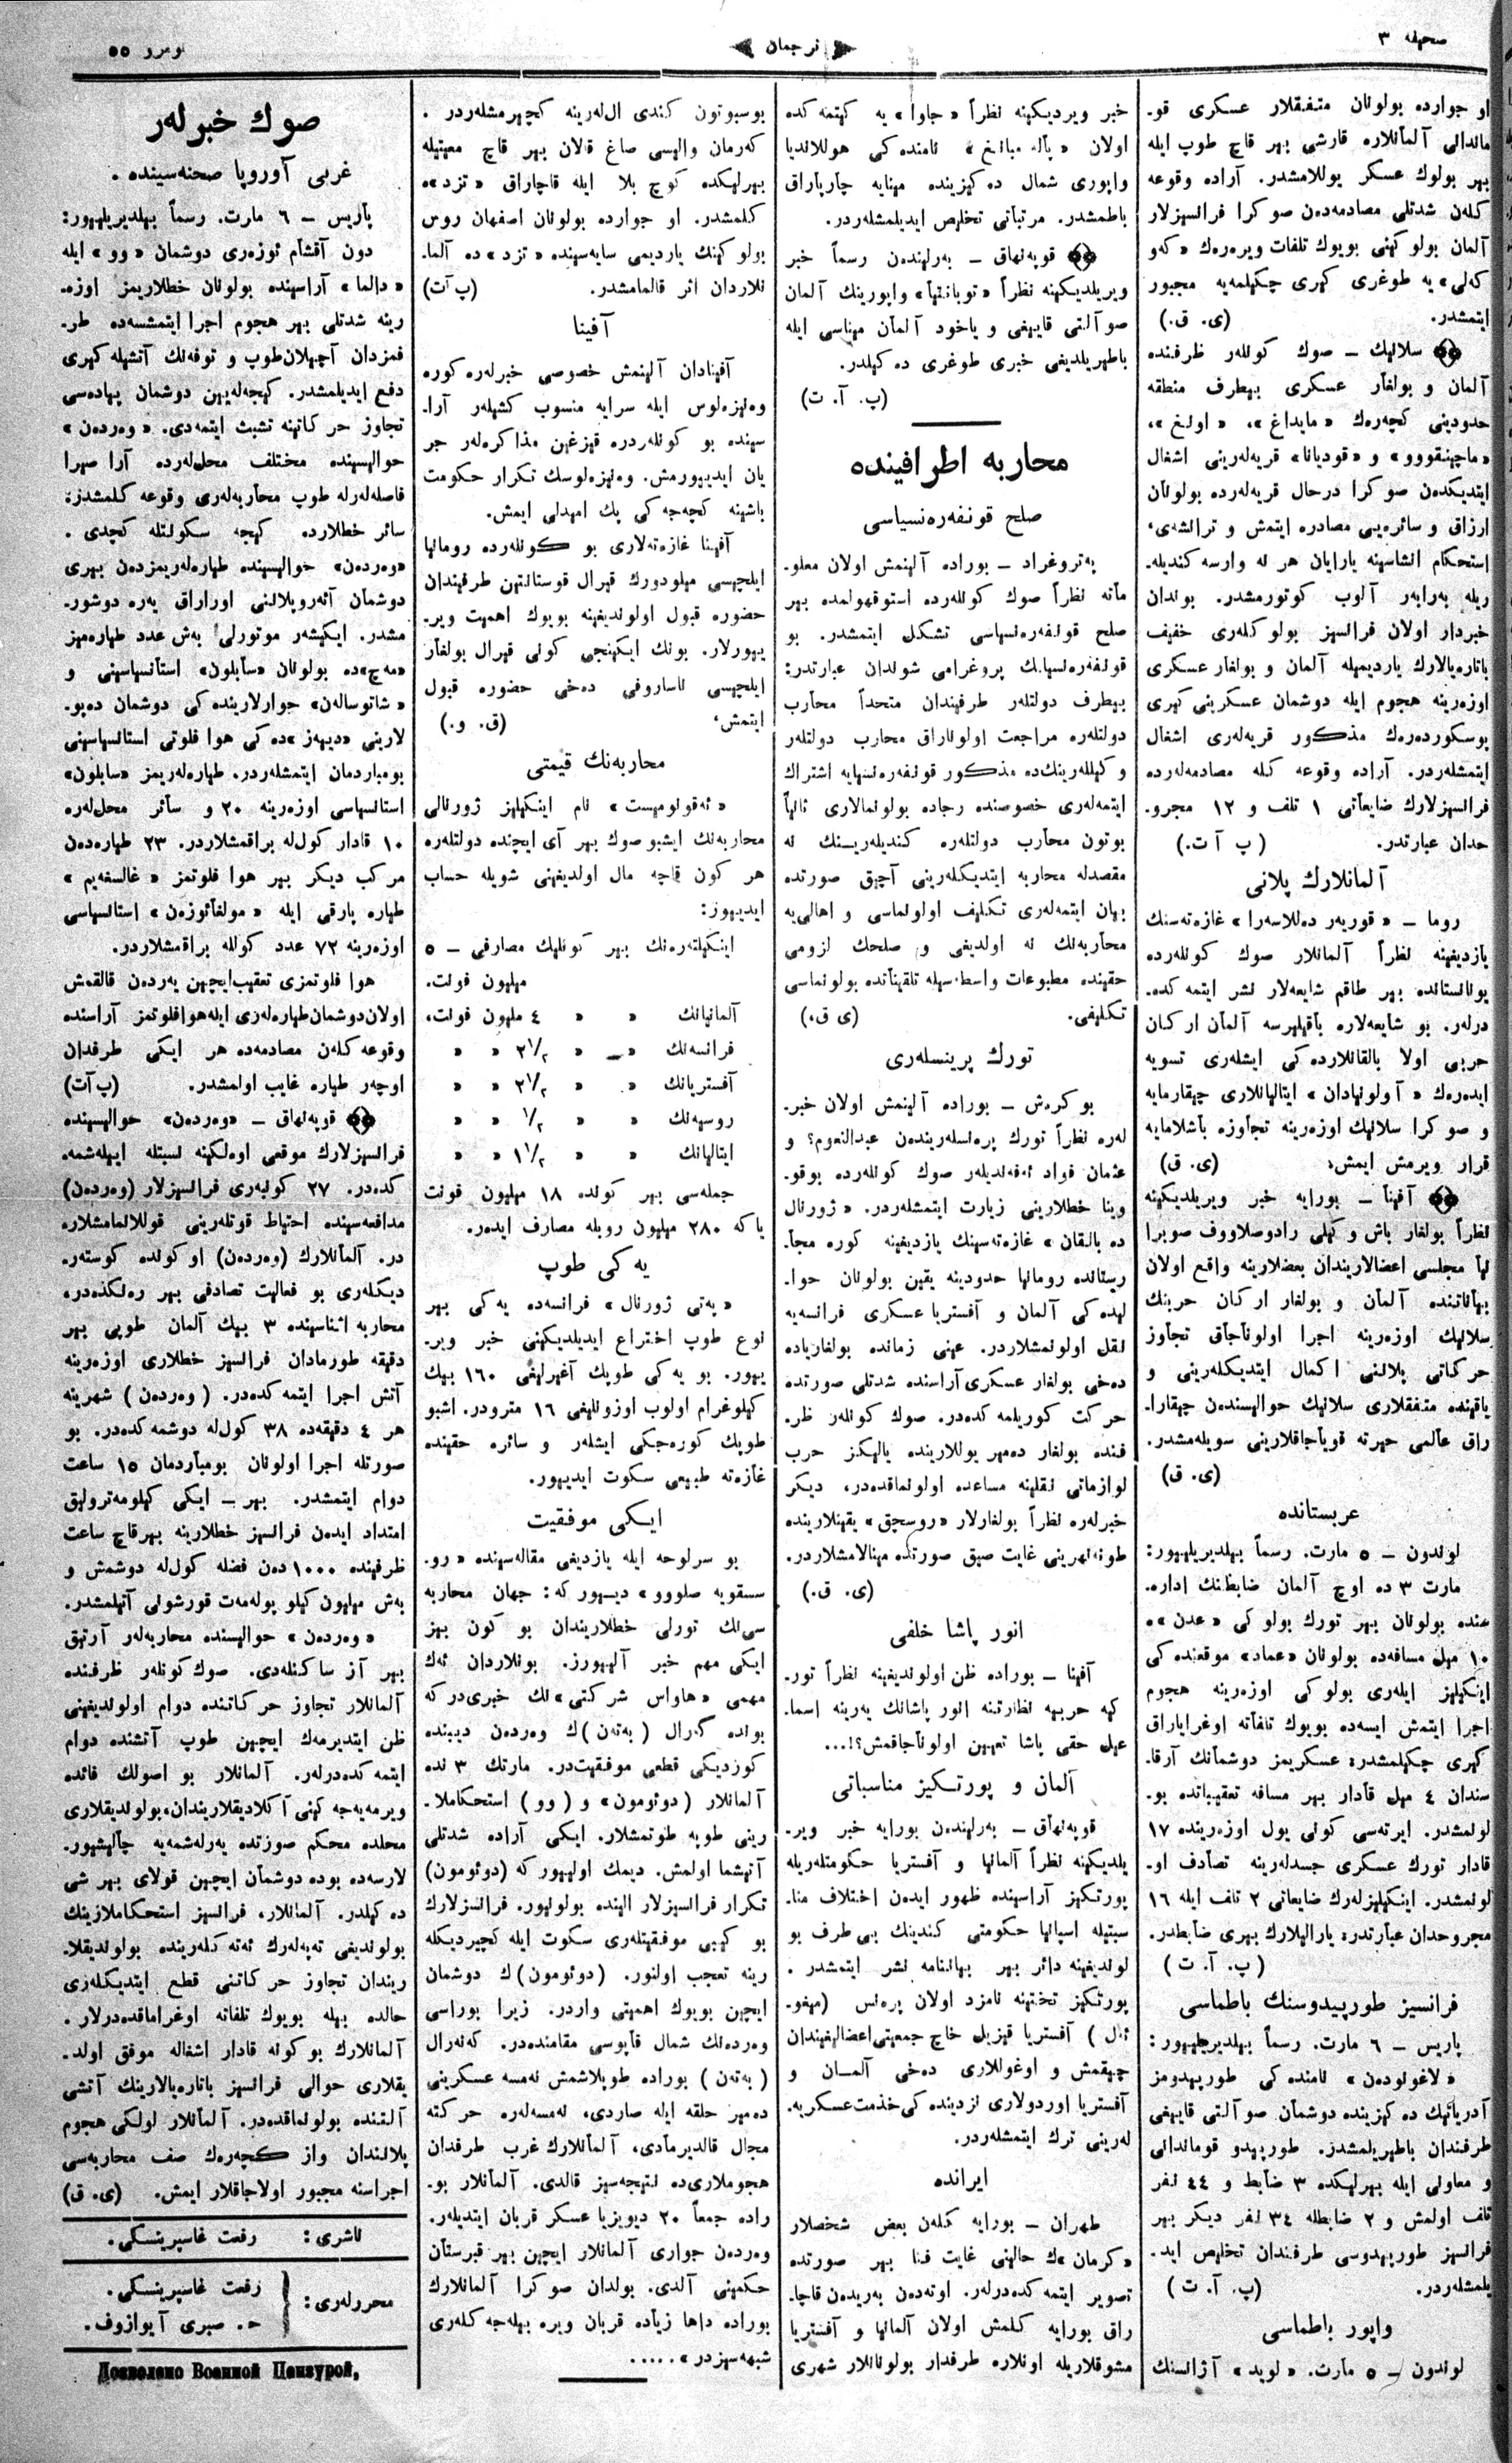 صحیفه ٣
ترجمان
نومرو ٥٥
او جوارده بولونان متفقلار عسكری قو-
ماندانی آلمانلاره قارشی بهر قاچ طوپ ایله
بهر بولوك عسكر یوللامشدر. آراده وقوعه
كلەن شدتلی مصادمەدەن صوكرا فرانسیزلار
آلمان بولوكهنی بویوك تلفات ویرەرەك «كەو
كەلی» یه طوغری كهری چكهلمەیه مجبور
ایتمشدر. (ی. ق.)
سلانهك – صوك كونلەر ظرفنده
آلمان و بولغار عسكری بهطرف منطقه
حدودینی كچەرەك «مایداغ»، «اولخ»،
«ماچنقووو» و «قودیانا» قریەلەرینی اشغال
ایتدیكدەن صوكرا درحال قریەلەرده بولونان
ارزاق و سائرەیی مصادره ایتمش و ترانشەی،
استحكام انشاسنه یارایان هر نه وارسه كندیله-
ریله بەرابەر آلوب كوتورمشدر. بوندان
خبردار اولان فرانسهز بولوكلەری خفیف
باتارەیالارك یاردیمیله آلمان و بولغار عسكری
اوزەرینه هجوم ایله دوشمان عسكرینی كهری
پوسكوردەرەك مذكور قریەلەری اشغال
ایتمشلەردر. آراده وقوعه كلە مصادمەلەرده
فرانسهزلارك ضایعاتی ١ تلف و ١٢ مجرو-
حدان عبارتدر. (پ آ ت.)
آلمانلارك پلانی
روما – «قوریەر دەللاسەرا» غازەتەسنك
یازدیغینه نظراً آلمانلار صوك كونلەرده
یونانستانده بهر طاقم شایعەلار نشر ایتمەكده-
درلەر. بو شایعەلاره باقهلهرسه آلمان اركان
حربی اولا بالقانلاردەكی ایشلەری تسویه
ایدەرەك «آولونهادان» ایتالهانلاری چهقارمایه
و صوكرا سلانهك اوزەرینه تجاوزه باشلامایه
قرار ویرمش ایمش. (ی. ق)
آفهنا – بورایه خبر ویریلدیكهنه
نظراً بولغار باش وكهلی رادوصلاووف صوبرا
نها مجلسی اعضالاریندان بعضلارینه واقع اولان
بهاناتنده آلمان و بولغار اركان حربنك
سلانهك اوزەرینه اجرا اولوناجاق تجاوز
حركاتی پلاننی اكمال ایتدیكلەرینی و
یاقهنده متفقلاری سلانهك حوالهسندەن چهقارا-
راق عالمی حیرته قویاجاقلارینی سویلەمشدر.
(ی. ق)
عربستانده
لوندون – ٥ مارت. رسماً بهلدیریلهیور:
مارت ٣ ده اوچ آلمان ضابطنك اداره-
سنده بولونان بهر تورك بولوكی «عدن»ه
١٠ میل مسافەده بولونان «عماد» موقعندەكی
اینكهلهز ایلەری بولوكی اوزەرینه هجوم
اجرا ایتمش ایسەده بویوك تلفاته اوغرایاراق
كهری چكهلمشدر. عسكریمز دوشمانك آرقا-
سندان ٤ میل قادار بهر مسافه تعقیباتده بو-
لونمشدر. ایرتەسی كونی یول اوزەرینده ١٧
قادار تورك عسكری جسدلەرینه تصادف او-
لونمشدر. اینكهلهزلەرك ضایعاتی ٢ تلف ایله ١٦
مجروحدان عبارتدر. یارالهلارك بهری ضابطدر.
(پ. آ. ت)
فرانسیز طورپیدوسنك باطماسی
پاریس – ٦ مارت. رسماً بهلدیریلهیور:
«لاغولودەن» نامندەكی طورپهدومز
آدریاتهك دەكزینده دوشمان صو آلتی قایهغی
طرفندان باطیریلمشدر. طورپهدو قوماندانی
و معاونی ایله بهرلهكده ٣ ضابط و ٤٤ نفر
تلف اولمش و ٢ ضابطله ٣٤ نفر دیكر بهر
فرانسهز طورپهدوسی طرفندان تخلیص اید-
یلمشلەردر. (پ. آ. ت)
واپور باطماسی
لوندون – ٥ مارت. «لوید» آژانسنك
خبر ویردیكهنه نظراً «جاوا» یه كهتمەكده
اولان نامندەكی هوللاندیا
واپوری شمال دەكزینده مهنایه چارپاراق
باطمشدر. مرتباتی تخلیص ایدیلمشلەردر.
قوپەنهاق – بەرلهندەن رسماً خبر
ویریلدیكهنه نظراً «توبانتها» واپورینك آلمان
صو آلتی قایهغی و یاخود آلمان مهناسی ایله
باطهریلدیغی خبری طوغری دەكهلدر.
(پ. آ. ت)
محاربه اطرافینده
صلح قونفەرەنسیاسی
پەتروغراد – بوراده آلهنمش اولان معلو-
ماته نظراً صوك كونلەرده استوقهولمده بهر
صلح قونفەرەنسهاسی تشكل ایتمشدر. بو
قونفەرەنسهانك پروغرامی شوندان عبارتدر:
بهطرف دولتلەر طرفهندان متحداً محارب
دولتلەره مراجعت اولوناراق محارب دولتلەر
وكهللەرینكده مذكور قونفەرەنسهایه اشتراك
ایتمەلەری خصوصنده رجاده بولونمالاری ثانهاً
بوتون محارب دولتلەره كندیلەرینك نه
مقصدله محاربه ایتدیكلەرینی آچهق صورتده
بهان ایتمەلەری تكلیف اولونماسی و اهالی‌یه
محاربەنك نه اولدیغی و صلحك لزومی
حقهنده مطبوعات واسطەسیله تلقهناتده بولونماسی
تكلیفی. (ی ق.)
تورك پرینسلەری
بوكرەش – بوراده آلهنمش اولان خبر-
لەره نظراً تورك پرەنسلەریندەن عبدالنعوم؟ و
عثمان فواد ئەفەندیلەر صوك كونلەرده بوقو-
وینا خطلارینی زیارت ایتمشلەردر. «ژورنال
ده بالقان» غازەتەسینك یازدیغینه كوره مجا-
رستانده رومانها حدودینه یقین بولونان حوا-
لیدەكی آلمان و آفستریا عسكری فرانسەیه
نقل اولونمشلاردر. عهنی زمانده بولغاریاده
دەخی بولغار عسكری آراسنده شدتلی صورتده
حركت كوریلمەكدەدر. صوك كونلەر ظر-
فنده بولغار دەمهر یوللارینده یالهكز حرب
لوازماتی نقلینه مساعده اولونماقدەدر. دیكر
خبرلەره نظراً بولغارلار «روسچق» یقهنلارینده
طونەنهرینی غایت صیق صورتده مهنالامشلاردر.
(ی. ق.)
انور پاشا خلفی
آفهنا – بوراده ظن اولوندیغینه نظراً تور-
كهه حربیه نظارتنه انور پاشانك یەرینه اسما-
عیل حقی پاشا تعیین اولوناجاقمش؟!...
آلمان و پورتكیز مناسباتی
قوپەنهاق – بەرلهندەن بورایه خبر ویر-
یلدیكهنه نظراً آلمانها و آفستریا حكومتلەریله
پورتكهز آراسهنده ظهور ایدەن اختلاف منا-
سبتیله اسپانها حكومتی كندینك بی‌طرف بو
لوندیغینه دائر بهر بهاننامه نشر ایتمشدر.
پورتكهز تختهنه نامزد اولان پرەنس (مهغو-
ئال) آفستریا قهزیل خاچ جمعیتی اعضالهغیندان
چهقمش و اوغوللاری دەخی آلمان و
آفستریا اوردولاری نزدیندەكی خدمت عسكریه-
لەرینی ترك ایتمشلەردر.
ایرانده
طهران – بورایه كلەن بعض شخصلار
«كرمان»ك حالینی غایت فنا بهر صورتده
تصویر ایتمەكدەدرلەر. اوتەدەن بەریدەن قاچا-
راق بورایه كلمش اولان آلمانها و آفستریا
مشوقلاریله اونلاره طرفدار بولونانلار شهری
بوسبوتون كندی ال‌لەرینه كچیرمشلەردر.
كەرمان والیسی صاغ قالان بهر قاچ معیتیله
بهرلهكده كوچ بلا ایله قاچاراق «تزد»ه
كلمشدر. او جوارده بولونان اصفهان روس
بولوكهنك یاردیمی سایەسهنده «تزد»ده آلما-
نلاردان اثر قالمامشدر. (پ آت)
آفینا
آفهنادان آلهنمش خصوصی خبرلەره كوره
وەنهزەلوس ایله سرایه منسوب كشهلەر آرا-
سهنده بو كونلەرده قهزغهن مذاكرەلەر جر
یان ایدیهورمش. وەنهزەلوسك تكرار حكومت
باشهنه كچەجەكی پك امهدلی ایمش.
آفهنا غازەتەلاری بو كونلەرده رومانها
ایلچهسی مهلودورك قهرال قوستانتهن طرفهندان
حضوره قبول اولوندیغینه بویوك اهمیت ویر-
یهورلار. بونك ایكهنجی كونی قهرال بولغار
ایلچهسی ناساروفی دەخی حضوره قبول
ایتمش. (ق. و.)
محاربەنك قیمتی
«ئەقونومهست» نام اینكهلهز ژورنالی
محاربەنك ایشبو صوك بهر آی ایچنده دولتلەره
هر كون قاچه مال اولدیغهنی شویله حساب
ایدیهور:
اینكهلتەرەنك بهر كونلهك مصارفی – ٥
مهلیون فونت.
آلمانیانك « « ٤ مهلیون فونت،
فرانسەنك « « ٢١/٢ « «
آفستریانك « « ٢١/٢ « «
روسیەنك « « ١/٢ « «
ایتالهانك « « ١١/٢ « «
جملەسی بهر كونده ١٨ مهلیون فونت
یاكه ٢٨٠ مهلیون روبله مصارف ایدەر.
یەكی طوپ
«پەتی ژورنال» فرانسەده یەكی بهر
نوع طوپ اختراع ایدیلدیكهنی خبر ویر-
یهور. بو یەكی طوپك آغیرلهغی ١٦٠ بیك
كیلوغرام اولوب اوزونلهغی ١٦ مترودر. اشبو
طوپك كورەجكی ایشلەر و سائره حقهنده
غازەته طبیعی سكوت ایدیهور.
ایكی موفقیت
بو سرلوحه ایله یازدیغی مقالەسهنده «رو-
سسقویه صلووو» دیهور كه: جهان محاربه
سی‌نك تورلی خطلاریندان بو كون بهز
ایكی مهم خبر آلهیورز. بونلاردان ئەك
مهمی «هاواس شركتی»نك خبری‌در كه
بونده كەنرال (پەتەن)ك وەردەن دیبنده
كوزدیكی قطعی موفقیت‌در. مارتك ٣ نده
آلمانلار (دوئومون» و (وو) استحكاملا-
رینی طوپه طوتمشلار. ایكی آراده شدتلی
آتهشما اولمش. دیمك اولهیور كه (دوئومون)
تكرار فرانسهزلار الهنده بولونهور. فرانسهزلارك
بو كبی موفقیتلەری سكوت ایله كچیردیكله
رینه تعجب اولنور. (دوئومون)ك دوشمان
ایچهن بویوك اهمیتی واردر. زیرا بوراسی
وەردەنك شمال قاپوسی مقامندەدر. كەنەرال
(پەتەن) بوراده طوپلاشمش نەمسه عسكرینی
دەمهر حلقه ایله صاردی، نەمسەلەره حركته
مجال قالدیرمادی، آلمانلارك غرب طرفدان
هجوملاری‌ده نتهجەسهز قالدی. آلمانلار بو-
راده جمعاً ٢٠ دیویزیا عسكر قربان ایتدیلەر.
وەردەن جواری آلمانلار ایچهن بهر قبرستان
حكمهنی آلدی. بوندان صوكرا آلمانلارك
بوراده داها زیاده قربان ویره بهلەجەكلەری
شبهەسهزدر».....
صوك خبرلەر
غربی آوروپا صحنەسینده.
پاریس – ٦ مارت. رسماً بهلدیریلهیور:
دون آقشام ئوزەری دوشمان «وو» ایله
«دالما» آراسهنده بولونان خطلاریمز اوزه-
رینه شدتلی بهر هجوم اجرا ایتمشسەده طر-
فمزدان آچهلان طوپ و توفەنك آتشیله كهری
دفع ایدیلمشدر. كهجەلەیهن دوشمان پهادەسی
تجاوز حركاتهنه تشبث ایتمەدی. «وەردەن»
حوالهسهنده مختلف محل‌لەرده آرا صهرا
فاصلەلەرله طوپ محاربەلەری وقوعه كلمشدر.
سائر خطلارده كهجه سكونتله كچدی.
«وەردەن» حوالهسهنده طهارەلەریمزدەن بهری
دوشمان آئەروپلاننی اوراراق یەره دوشور-
مشدر. ایكهشەر موتورلی بەش عدد طهارەمهز
«مەچ»ده بولونان «سابلون» استانسهاسهنی و
«شاتوسالەن» جوارلاریندەكی دوشمان دەپو-
لارینی «دیهەز»دەكی هوا فلوتی استانسهاسهنی
بومباردمان ایتمشلەردر. طهارەلەریمز «سابلون»
استانسهاسی اوزەرینه ٢٠ و سائر محل‌لەره
١٠ قادار كول‌له براقمشلاردر. ٢٣ طهارەدەن
مركب دیكر بهر هوا فلوتمز «غالسفەیم»
طهاره پارقی ایله «مولغائوزەن» استانسهاسی
اوزەرینه ٧٢ عدد كولله براقمشلاردر.
هوا فلوتمزی تعقیب ایچهن یەردەن قالقمش
اولان دوشمان طهارەلەری ایله هوا فلوتمز آراسنده
وقوعه كلەن مصادمەده هر ایكی طرفدان
اوچەر طهاره غایب اولمشدر. (پ آت)
قوپەنهاق – «وەردەن» حوالهسهنده
فرانسهزلارك موقعی اوەلكهنه نسبتله ایهلەشمه-
كدەدر. ٢٧ كونبەری فرانسهزلار (وەردەن)
مدافعەسهنده احتهاط قوتلەرینی قوللانمامشلاره
در. آلمانلارك (وەردەن) او كونده كوستەر-
دیكلەری بو فعالیت تصادفی بهر رەنكدەدر،
محاربه اثناسهنده ٣ بیك آلمان طوپی بهر
دقیقه طورمادان فرانسهز خطلاری اوزەرینه
آتش اجرا ایتمەكدەدر. (وەردەن) شهرینه
هر ٤ دقیقەده ٣٨ كول‌له دوشمەكدەدر. بو
صورتله اجرا اولونان بومباردمان ١٥ ساعت
دوام ایتمشدر. بهر – ایكی كهلومەترولهق
امتداد ایدەن فرانسهز خطلارینه بهرقاچ ساعت
ظرفینده ١٠٠٠دەن فضله كول‌له دوشمش و
بەش مهلیون كهلو بولەمەت قورشونی آتهلمشدر.
«وەردەن» حوالهسنده محاربەلەر آرتهق
بهر آز ساكنلەدی. صوك كونلەر ظرفنده
آلمانلار تجاوز حركاتنده دوام اولوندیغهنی
ظن ایتدیرمەك ایچهن طوپ آتشنده دوام
ایتمەكدەدرلەر. آلمانلار بو اصولك فائده
ویرمەیەجەكهنی آكلادیقلاریندان، بولوندیقلاری
محلده محكم صورتده یەرلەشمەیه چالهشیور-
لارسەده بوده دوشمان ایچهن قولای بهر شی
دەكهلدر. آلمانلار، فرانسهز استحكاملارینك
بولوندیغی تەپەلەرك ئەتەكلەرینده بولوندیقلا-
ریندان تجاوز حركاتنی قطع ایتدیكلەری
حالده بهله بویوك تلفاته اوغراماقدەدرلار.
آلمانلارك بوكونه قادار اشغاله موفق اولد-
یقلاری حوالی فرانسهز باتارەیالارینك آتشی
آلتنده بولونماقدەدر. آلمانلار اولكی هجوم
پلانندان واز كچەرەك صف محاربەسی
اجراسنه مجبور اولاجاقلار ایمش. (ی. ق)
ناشری: رفعت غاسپرینسكی.
محررلەری: رفعت غاسپرینسكی.
ح. صبری آیوازوف.
Дозволено Военной Цензурой,